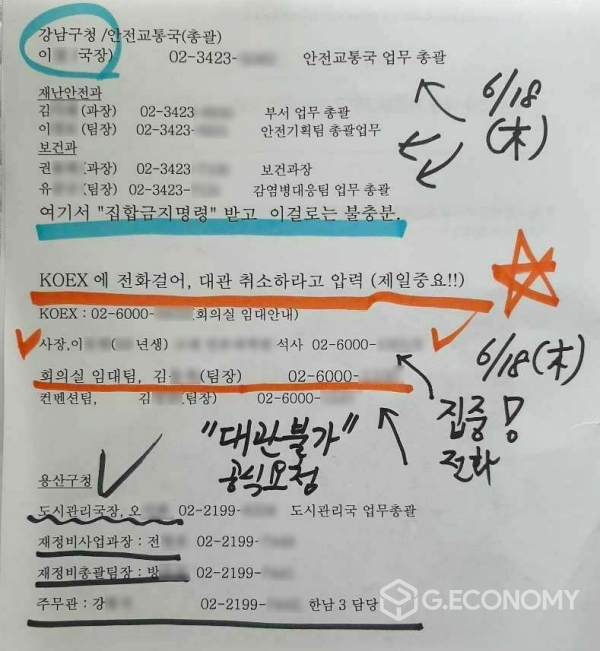 강남구청 /안전교통국(총괄)
이 국장) 02-3423- 안전교통국 업무 총괄
재난안전과
김 (과장) 02-3423 부서 업무 총괄
이 (팀장) 02-3423 안전기획팀 총괄업무
보건과
권 (과장) 02-3423 보건과장
유 (팀장) 02-3423- 감염병대응팀 업무 총괄
6/18
(木)
여기서 "집합금지명령" 받고 이걸로는 불충분.
KOEX 에 전화걸어, 대관 취소하라고 압력 (제일중요!!)
KOEX : 02-6000- (회의실 임대안내)
사장,이 년생) 석사 02-6000-
회의실 임대팀, 김 (팀장) 02-6000-
컨벤션팀, 김 (팀장) 02-6000-
6/18(木)
집중!
전화
"대관불가"
공식요청
용산구청
도시관리국장, 오 02-2199- 도시관리국 업무총괄
재정비사업과장 : 전 02-2199-
재정비총괄팀장 : 방 02-2199-
주무관 : 강 02-2199- 한남 3 담당
G.ECONOMY